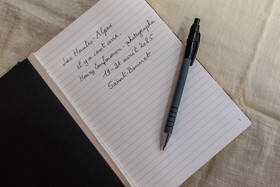 Les Hautes-Alpes
il y a cent ans.
Henry photographe
19-21 avril
Saint-Bonnet